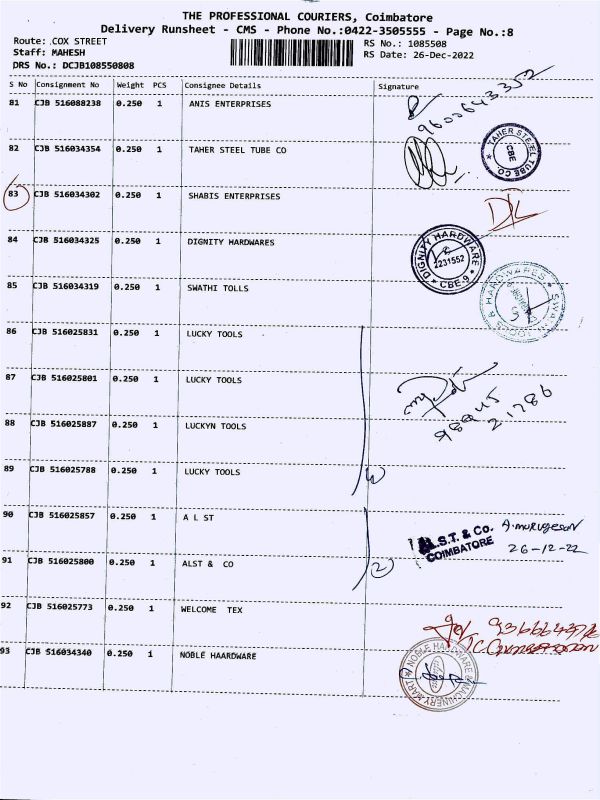 THE PROFESSIONAL COURIERS, Coimbatore
Delivery Runsheet - CMS - Phone No.:0422-3505555 - Page No.:8
Route: COX STREET
RS No.: 1085508
Staff: MAHESH
RS Date: 26-Dec-2022
DRS No.: DCJB108550808
S No Consignment No Weight PCS Consignee Details Signature
81 CJB 516088238 0.250 1 ANIS ENTERPRISES
9600643352
82 CJB 516034354 0.250 1 TAHER STEEL TUBE CO
TAHER STEEL TUBE CO. CBE
83 CJB 516034302 0.250 1 SHABIS ENTERPRISES
D/L
84 CJB 516034325 0.250 1 DIGNITY HARDWARES
DIGNITY HARDWARE 2231552 CBE-9
85 CJB 516034319 0.250 1 SWATHI TOLLS
& HARDWARES
86 CJB 516025831 0.250 1 LUCKY TOOLS
87 CJB 516025801 0.250 1 LUCKY TOOLS
88 CJB 516025887 0.250 1 LUCKYN TOOLS
21786
89 CJB 516025788 0.250 1 LUCKY TOOLS
90 CJB 516025857 0.250 1 A L ST
A.L.S.T. & Co. A.murugesan
COIMBATORE 26-12-22
91 CJB 516025800 0.250 1 ALST & CO
2
92 CJB 516025773 0.250 1 WELCOME TEX
93 CJB 516034340 0.250 1 NOBLE HAARDWARE
NOBLE HARDWARE & MACHINERY MART